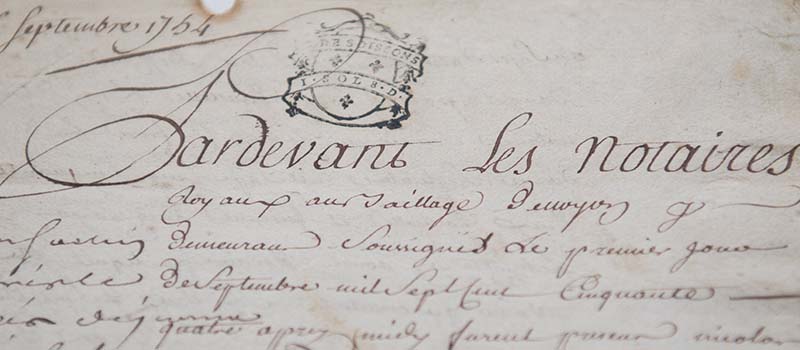 Septembre 1754
DE SOISSONS
1·SOLS·D·
Pardevant Les Notaires
Royaux au Baillage
demeurans Soussignés Le premier Jour
de Septembre mil Sept Cent Cinquante
quatre apres midy furent presens Nicolas